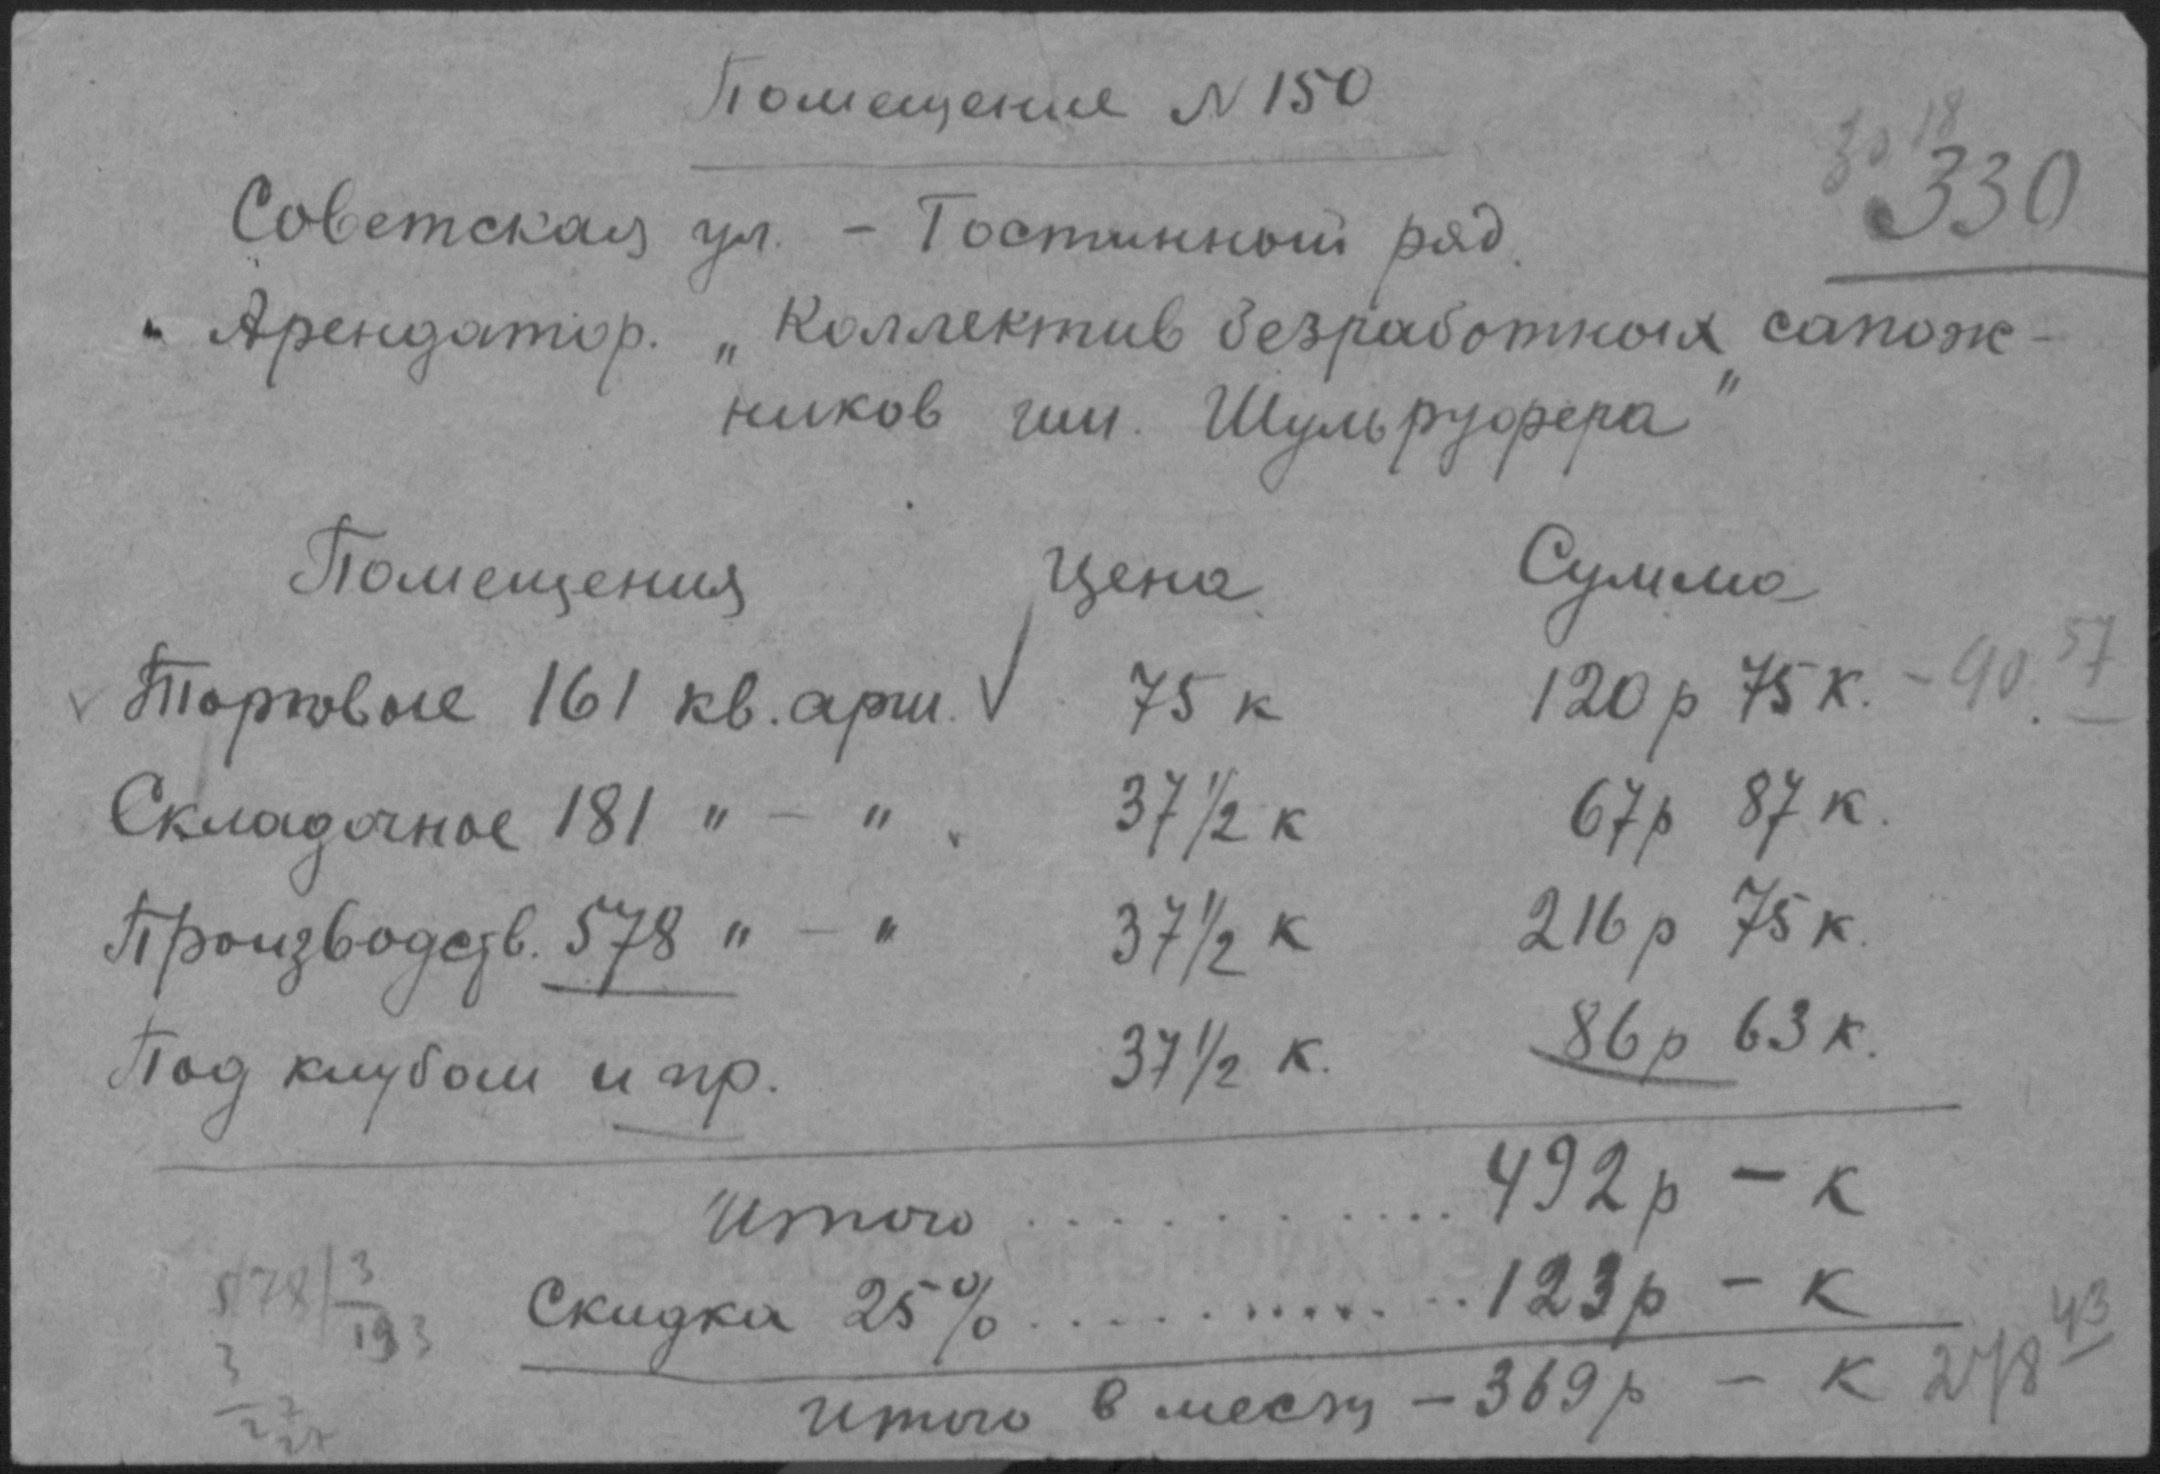 Помещение N 150
330
Советская ул. – Гостинный ряд.
Арендатор. „Коллектив безработных сапож-
ников им. Шульруфера"
Помещения Цена Сумма
Торговое 161 кв. арш. 75 к 120 р 75 к. – 90.57
Складочное 181 " – " 37 1/2 к 67 р 87 к.
Производств. 578 " – " 37 1/2 к 216 р 75 к.
Под клубом и пр. 37 1/2 к. 86 р 63 к.
Итого ............ 492 р – к
Скидка 25% ............ 123 р – к
Итого в месяц – 369 р – к 278 43
578 | 3
193
3
27
27